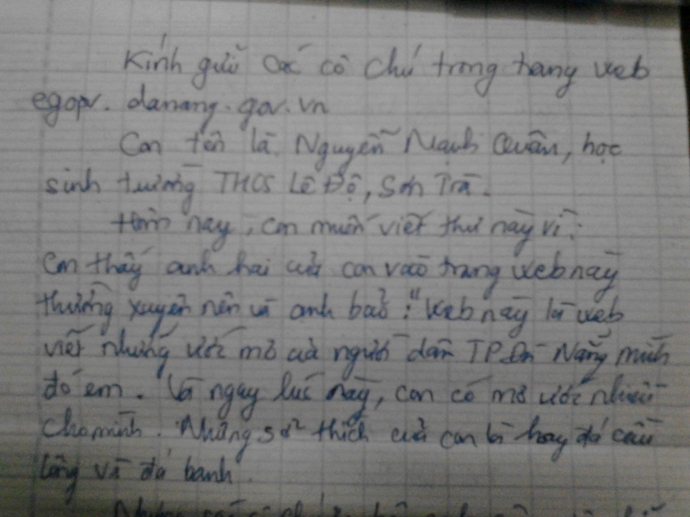 Kính gửi các cô chú trong trang web
egopv. danang. gov. vn
Con tên là Nguyễn Mạnh Quân, học
sinh trường THCS Lê Độ, Sơn Trà.
Hôm nay, con muốn viết thư này vì:
Con thấy anh hai của con vào trang web này
thường xuyên nên và anh bảo: "Web này là web
viết những ước mơ của người dân TP. Đà Nẵng mình
đó em. Và ngay lúc này, con có mơ ước nhiều
cho mình. Những sở thích của con là hay đá cầu
lông và đá banh.